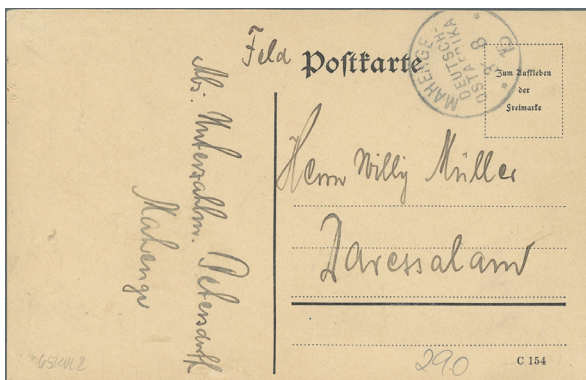 Feld Postkarte
MAHENGE
DEUTSCH-
OSTAFRIKA
8
Zum Aufkleben
der
Freimarke
Abs. Unterzahlm. Petersdorff
Mahenge
Herrn Willy Müller
Daressalam
290
C 154